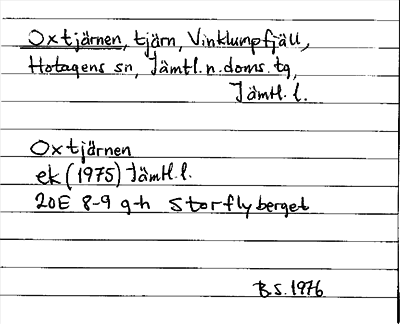 Oxtjärnen, tjärn, Vinklumpfjäll,
Hotagens sn, Jämtl. n. doms. tg,
Jämtl. l.
Oxtjärnen
ek (1975) Jämtl. l.
20E 8-9 g-h Storflyberget
B.S. 1976